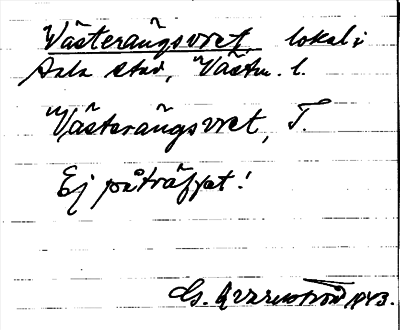 Västerängsvret, lokal i
Sala stad, Västm. l.
Västerängsvret, T.
Ej påträffat!
Gs. Kvarnström 1943.